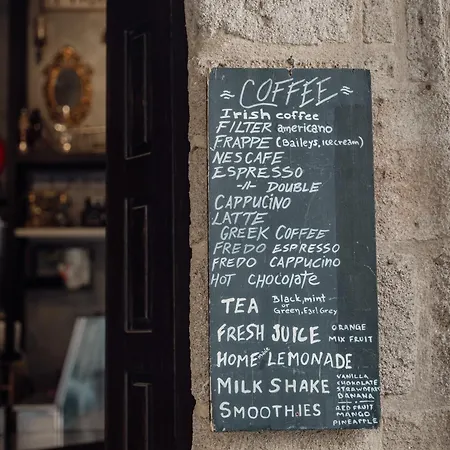 ≈ COFFEE ≈
Irish coffee
FILTER americano
FRAPPE (Baileys, icecream)
NESCAFE
ESPRESSO
-//- DOUBLE
CAPPUCINO
LATTE
GREEK COFFEE
FREDO ESPRESSO
FREDO CAPPUCINO
HOT CHOCOLATE
TEA Black, mint or
Green, Earl Grey
FRESH JUICE ORANGE
MIX FRUIT
HOMEmade LEMONADE
MILK SHAKE VANILLA
CHOCKOLATE
STRAWBERY
BANANA
SMOOTHIES RED FRUIT
MANGO
PINEAPPLE